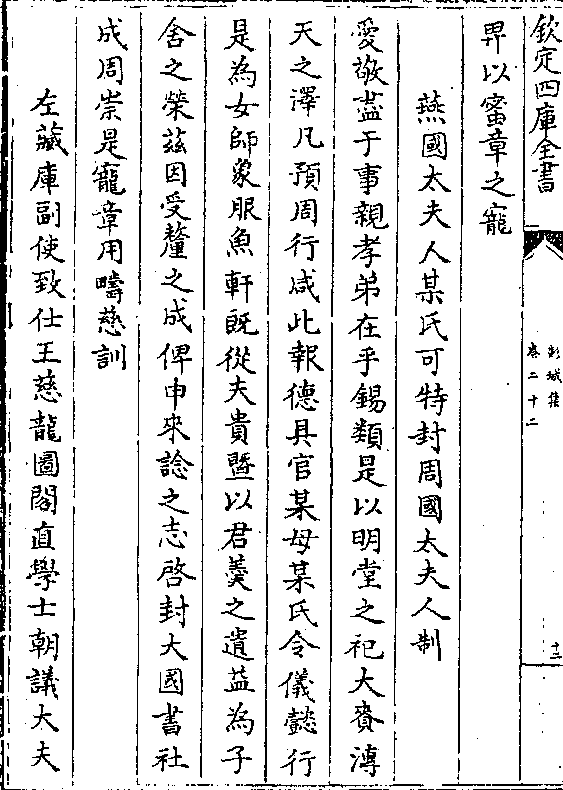 欽定四庫全書
彭城集
卷二十二
十二
畀以蜜章之寵
燕國太夫人某氏可特封周國太夫人制
愛敬盡于事親孝弟在乎錫類是以明堂之祀大賚溥
天之澤凡預周行咸此報德具官某母某氏令儀懿行
是為女師象服魚軒旣從夫貴曁以君羮之遺益為子
舍之榮茲因受釐之成俾申來諗之志啓封大國書社
成周崇是寵章用疇慈訓
左藏庫副使致仕王慈龍圖閣直學士朝議大夫